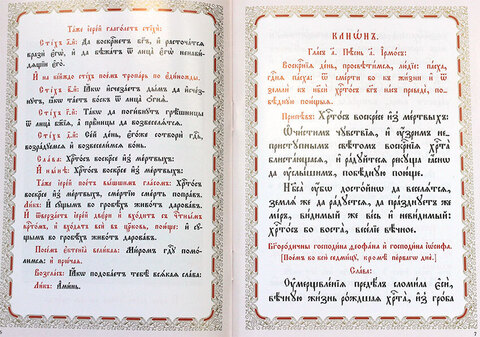 Та́же іере́й глаго́летъ стїхи̑:
Сті́хъ а҃-й: Да воскре́снетъ бг҃ъ, и҆ расточа́тсѧ
врази̑ є҆гѡ̀, и҆ да бѣжа́тъ ѿ лица̀ є҆гѡ̀ ненави́-
дѧщїи є҆го̀.
И҆ на кі́йждо сті́хъ пое́мъ тропа́рь по є҆ди́ножды.
Сті́хъ в҃-й: Ꙗ҆́кѡ и҆счеза́етъ ды́мъ да и҆сче́з-
нꙋтъ, ꙗ҆́кѡ та́етъ во́скъ ѿ лица̀ ѻ҆гнѧ̀.
Сті́хъ г҃-й: Та́кѡ да поги́бнꙋтъ грѣ̑шницы
ѿ лица̀ бж҃їѧ, а҆ првⷣницы да возвеселѧ́тсѧ.
Сті́хъ д҃-й: Се́й де́нь, є҆го́же сотворѝ гдⷭ҇ь,
возра́дꙋемсѧ и҆ возвесели́мсѧ во́нь.
Сла́ва: Хрⷭ҇то́съ воскре́се и҆з̾ ме́ртвыхъ:
И҆ ны́нѣ: Хрⷭ҇то́съ воскре́се и҆з̾ ме́ртвыхъ:
Та́же іере́й пое́тъ вы́шшимъ гла́сомъ: Хрⷭ҇то́съ
воскре́се и҆з̾ ме́ртвыхъ, сме́ртїю сме́рть попра́въ.
Ли́къ: И҆ сꙋ́щымъ во гробѣ́хъ живо́тъ дарова́въ.
И҆ ѿверза́етъ іере́й двє́ри и҆ вхо́дитъ съ чⷭ҇тны́мъ
крⷭ҇то́мъ, и҆ вхо́дѧтъ всѝ въ цр҃ковь, пою́ще: И҆ сꙋ́-
щымъ во гробѣ́хъ живо́тъ дарова́въ.
Пое́мъ є҆ктенїа̀ вели́каѧ: Ми́ромъ гдⷭ҇ꙋ помо-
ли́мсѧ: и҆ про́чаѧ.
Возгла́съ: Ꙗ҆́кѡ подоба́етъ тебѣ̀ всѧ́каѧ сла́ва:
Ли́къ: А҆ми́нь.
КАНѠ́НЪ.
Гла́съ а҃. Пѣ́снь а҃. І҆рмо́съ:
Воскресе́нїѧ де́нь, просвѣти́мсѧ, лю́дїе: па́сха,
гдⷭ҇нѧ па́сха: ѿ сме́рти бо къ жи́зни и҆ ѿ
землѝ къ нб҃сѝ хрⷭ҇то́съ бг҃ъ на́съ преведѐ, по-
бѣ́днꙋю пою́щыѧ.
Припѣ́въ: Хрⷭ҇то́съ воскре́се и҆з̾ ме́ртвыхъ:
Ѡ҆чи́стимъ чꙋ̑вствїѧ, и҆ ᲂу҆́зримъ не-
пристꙋ́пнымъ свѣ́томъ воскресе́нїѧ хрⷭ҇та̀
блиста́ющасѧ, и҆ ра́дꙋйтесѧ рекꙋ́ща ꙗ҆́снѡ
да ᲂу҆слы́шимъ, побѣ́днꙋю пою́ще.
Нб҃са̀ ᲂу҆́бѡ досто́йнѡ да веселѧ́тсѧ,
землѧ́ же да ра́дꙋетсѧ, да пра́зднꙋетъ же
мі́ръ, ви́димый же ве́сь и҆ неви́димый:
хрⷭ҇то́съ бо воста̀, весе́лїе вѣ́чное.
Бг҃оро́дичны господи́на ѳеофа́на и҆ господи́на і҆ѡ́сифа.
[Пое́мъ во всѐ седми́цꙋ, кро́мѣ пе́рвагѡ днѐ.]
Сла́ва:
Оу҆мерщвле́нїѧ предѣ́лъ взломи́ла є҆сѝ,
вѣ́чнꙋю жи́знь ро́ждшаѧ хрⷭ҇та̀, и҆з̾ гро́ба
7